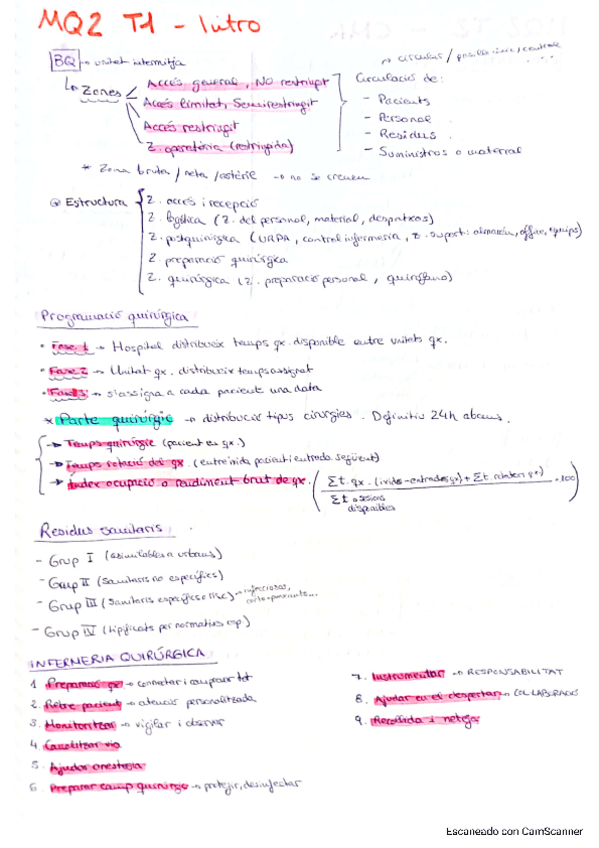 MQ2 T1 - Intro
BQ → unitat intermitja
↳ Zones
Accés general, NO restringit
Accés limitat, Semirestringit
Accés restringit
Z. operatòria (restringida)
Circulació de:
- Pacients
- Personal
- Residus
- Suministros o material
* Zona bruta / neta / estèril → no se creuen
Estructura
Z. accés i recepció
Z. logística (Z. del personal, material, despatxos)
Z. postquirúrgica (URPA, control infermeria, Z. suport: almacén, office, equips)
Z. preparació quirúrgica
Z. quirúrgica (Z. preparació personal, quiròfano)
Programació quirúrgica
• Fase 1 → Hospital distribueix temps qx. disponible entre unitats qx.
• Fase 2 → Unitat qx. distribueix temps assignat
• Fase 3 → s'assigna a cada pacient una data
* Parte quirúrgic → distribució tipus cirurgies. Definitiu 24h abans.
→ Temps quirúrgic (pacient en qx.)
→ Temps rotació del qx. (entre eixida pacient i entrada següent)
→ Índex ocupació o rendiment brut de qx. (Σt. qx. + Σt. rotation qx) · 100
Σt sessions
disponibles
Residus sanitaris
- Grup I (assimilables a urbans)
- Grup II (Sanitaris no específics)
- Grup III (Sanitaris específics o risc) → infecciosos,
- Grup IV (tipificats per normatives esp)
INFERMERIA QUIRÚRGICA
1. Preparació qx → connectar i comprovar tot
2. Rebre pacient → atenció personalitzada
3. Monitoritzar → vigilar i observar
4. Canalitzar via
5. Ajudar anestesia
6. Preparar camp quirúrgic → protegir, desinfectar
7. Instrumentar → RESPONSABILITAT
8. Ajudar en el despertar → COL·LABORADOS
9. Recollida i neteja
Escaneado con CamScanner